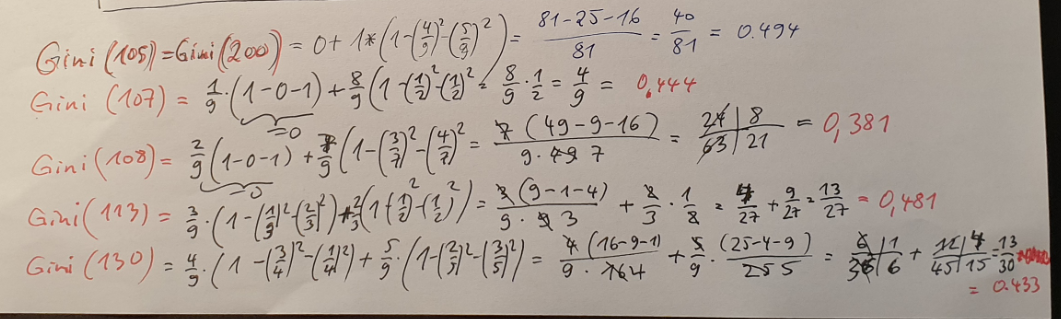 Gini(105)=Gini(200) = 0 + 1*(1-(4/9)²-(5/9)²) = (81-25-16)/81 = 40/81 = 0.494
Gini (107) = 1/9·(1-0-1) + 8/9(1-(1/2)²-(1/2)² = 8/9·1/2 = 4/9 = 0,444
=0
Gini(108) = 2/9(1-0-1) + 7/9(1-(3/7)²-(4/7)² = 7(49-9-16)/(9·49 7) = 24/63|8/21 = 0,381
=0
Gini(113) = 3/9·(1-(1/3)²-(2/3)²)+2/3(1-(1/2)²-(1/2)²) = 3(9-1-4)/(9·9 3) + 2/3·1/8 = 4/27 + 9/27 = 13/27 = 0,481
Gini (130) = 4/9·(1-(3/4)²-(1/4)²) + 5/9·(1-(2/5)²-(3/5)²) = 4(16-9-1)/(9·16 4) + 5/9·(25-4-9)/(25 5) = 6/36|1/6 + 12/45|4/15 = 13/30
= 0.433